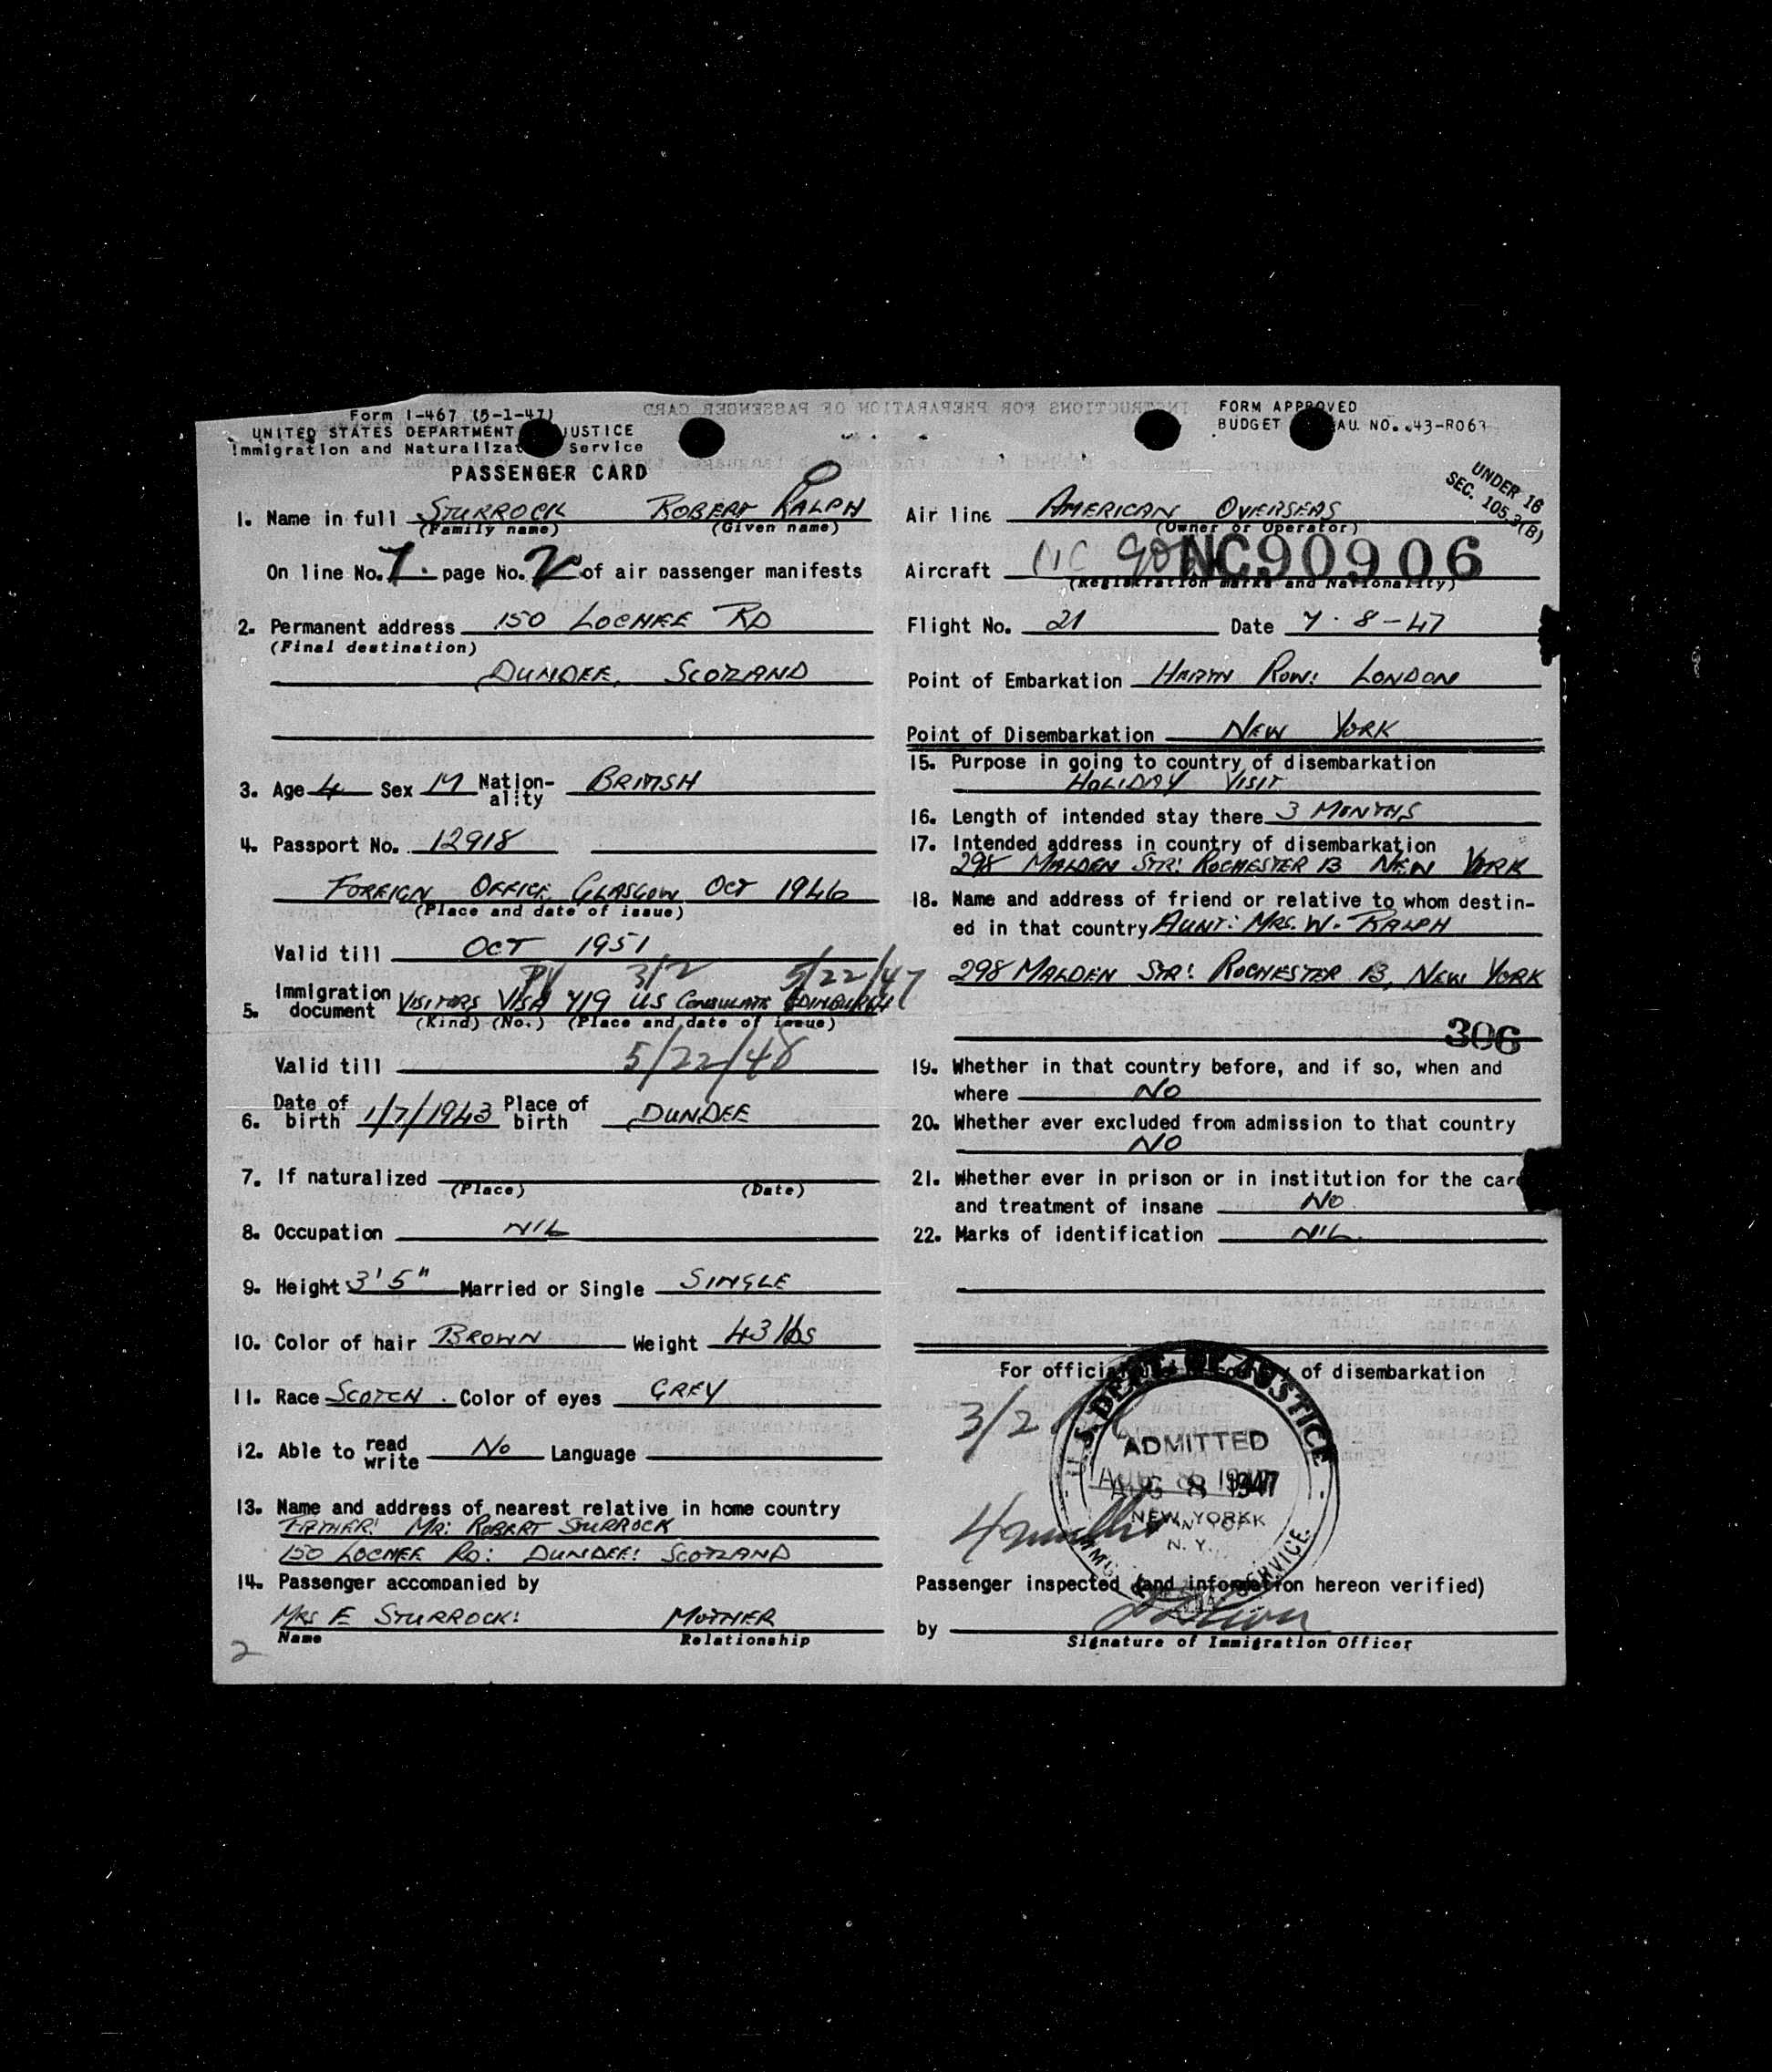 Form I-467 (5-1-47)
UNITED STATES DEPARTMENT JUSTICE
Immigration and Naturalizat Service
PASSENGER CARD
1. Name in full STURROCK ROBERT RALPH
(Family name) (Given name)
On line No. 7. page No. 2 of air passenger manifests
2. Permanent address 150 LOCHEE RD
(Final destination)
DUNDEE, SCOTLAND
3. Age 4 Sex M Nation-ality BRITISH
4. Passport No. 12918
FOREIGN OFFICE, GLASGOW OCT 1946
(Place and date of issue)
Valid till OCT 1951
PV 3/2 5/22/47
5. Immigration document VISITORS VISA 419 US CONSULATE EDINBURGH
(Kind) (No.) (Place and date of issue)
Valid till 5/22/48
6. Date of birth 1/7/1943 Place of birth DUNDEE
7. If naturalized
(Place) (Date)
8. Occupation NIL
9. Height 3' 5" Married or Single SINGLE
10. Color of hair BROWN Weight 43 lbs
11. Race SCOTCH. Color of eyes GREY
12. Able to read write No Language
13. Name and address of nearest relative in home country
FATHER: MR: ROBERT STURROCK
150 LOCHEE RD: DUNDEE: SCOTLAND
14. Passenger accompanied by
MRS E STURROCK: MOTHER
Name Relationship
2
INSTRUCTIONS FOR PREPARATION OF PASSENGER CARD
FORM APPROVED
BUDGET AU NO. 43-R063
UNDER 16
SEC. 105.3(B)
Air line AMERICAN OVERSEAS
(Owner or Operator)
Aircraft NC 90 NC90906
(Registration marks and Nationality)
Flight No. 21 Date 7-8-47
Point of Embarkation LONDON
Point of Disembarkation NEW YORK
15. Purpose in going to country of disembarkation
HOLIDAY VISIT
16. Length of intended stay there 3 MONTHS
17. Intended address in country of disembarkation
298 MALDEN STR: ROCHESTER 13 NEW YORK
18. Name and address of friend or relative to whom destin-
ed in that country AUNT: MRS. W. RALPH
298 MALDEN STR: ROCHESTER 13, NEW YORK
306
19. Whether in that country before, and if so, when and
where NO
20. Whether ever excluded from admission to that country
NO
21. Whether ever in prison or in institution for the care
and treatment of insane No
22. Marks of identification NIL.
For official of disembarkation
3/2
U.S. DEPT. OF JUSTICE
ADMITTED
AUG 8 1947
NEW YORK
N.Y.
SERVICE
4 months
Passenger inspected (and information hereon verified)
by
Signature of Immigration Officer